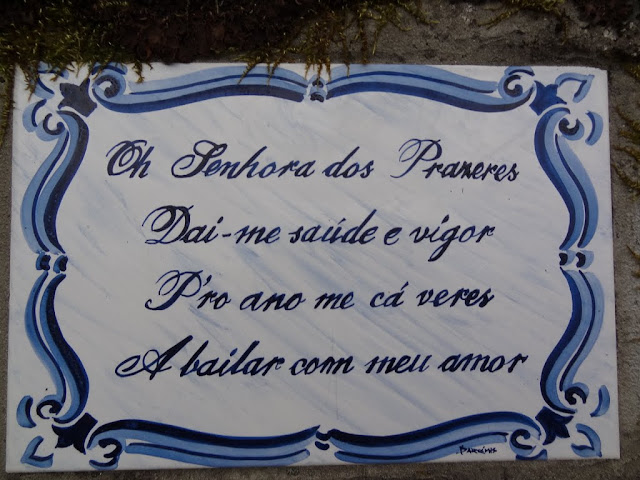 Oh Senhora dos Prazeres
Dai-me saúde e vigor
P'ro ano me cá veres
A bailar com meu amor